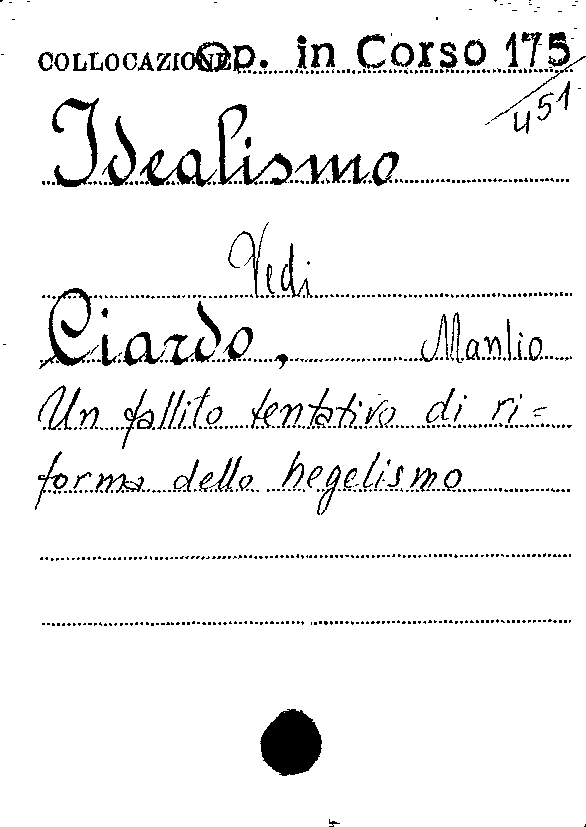 COLLOCAZIONE Op. in Corso 175
451
Idealismo
Vedi
Ciardo, Manlio
Un fallito tentativo di ri=
forma dello hegelismo